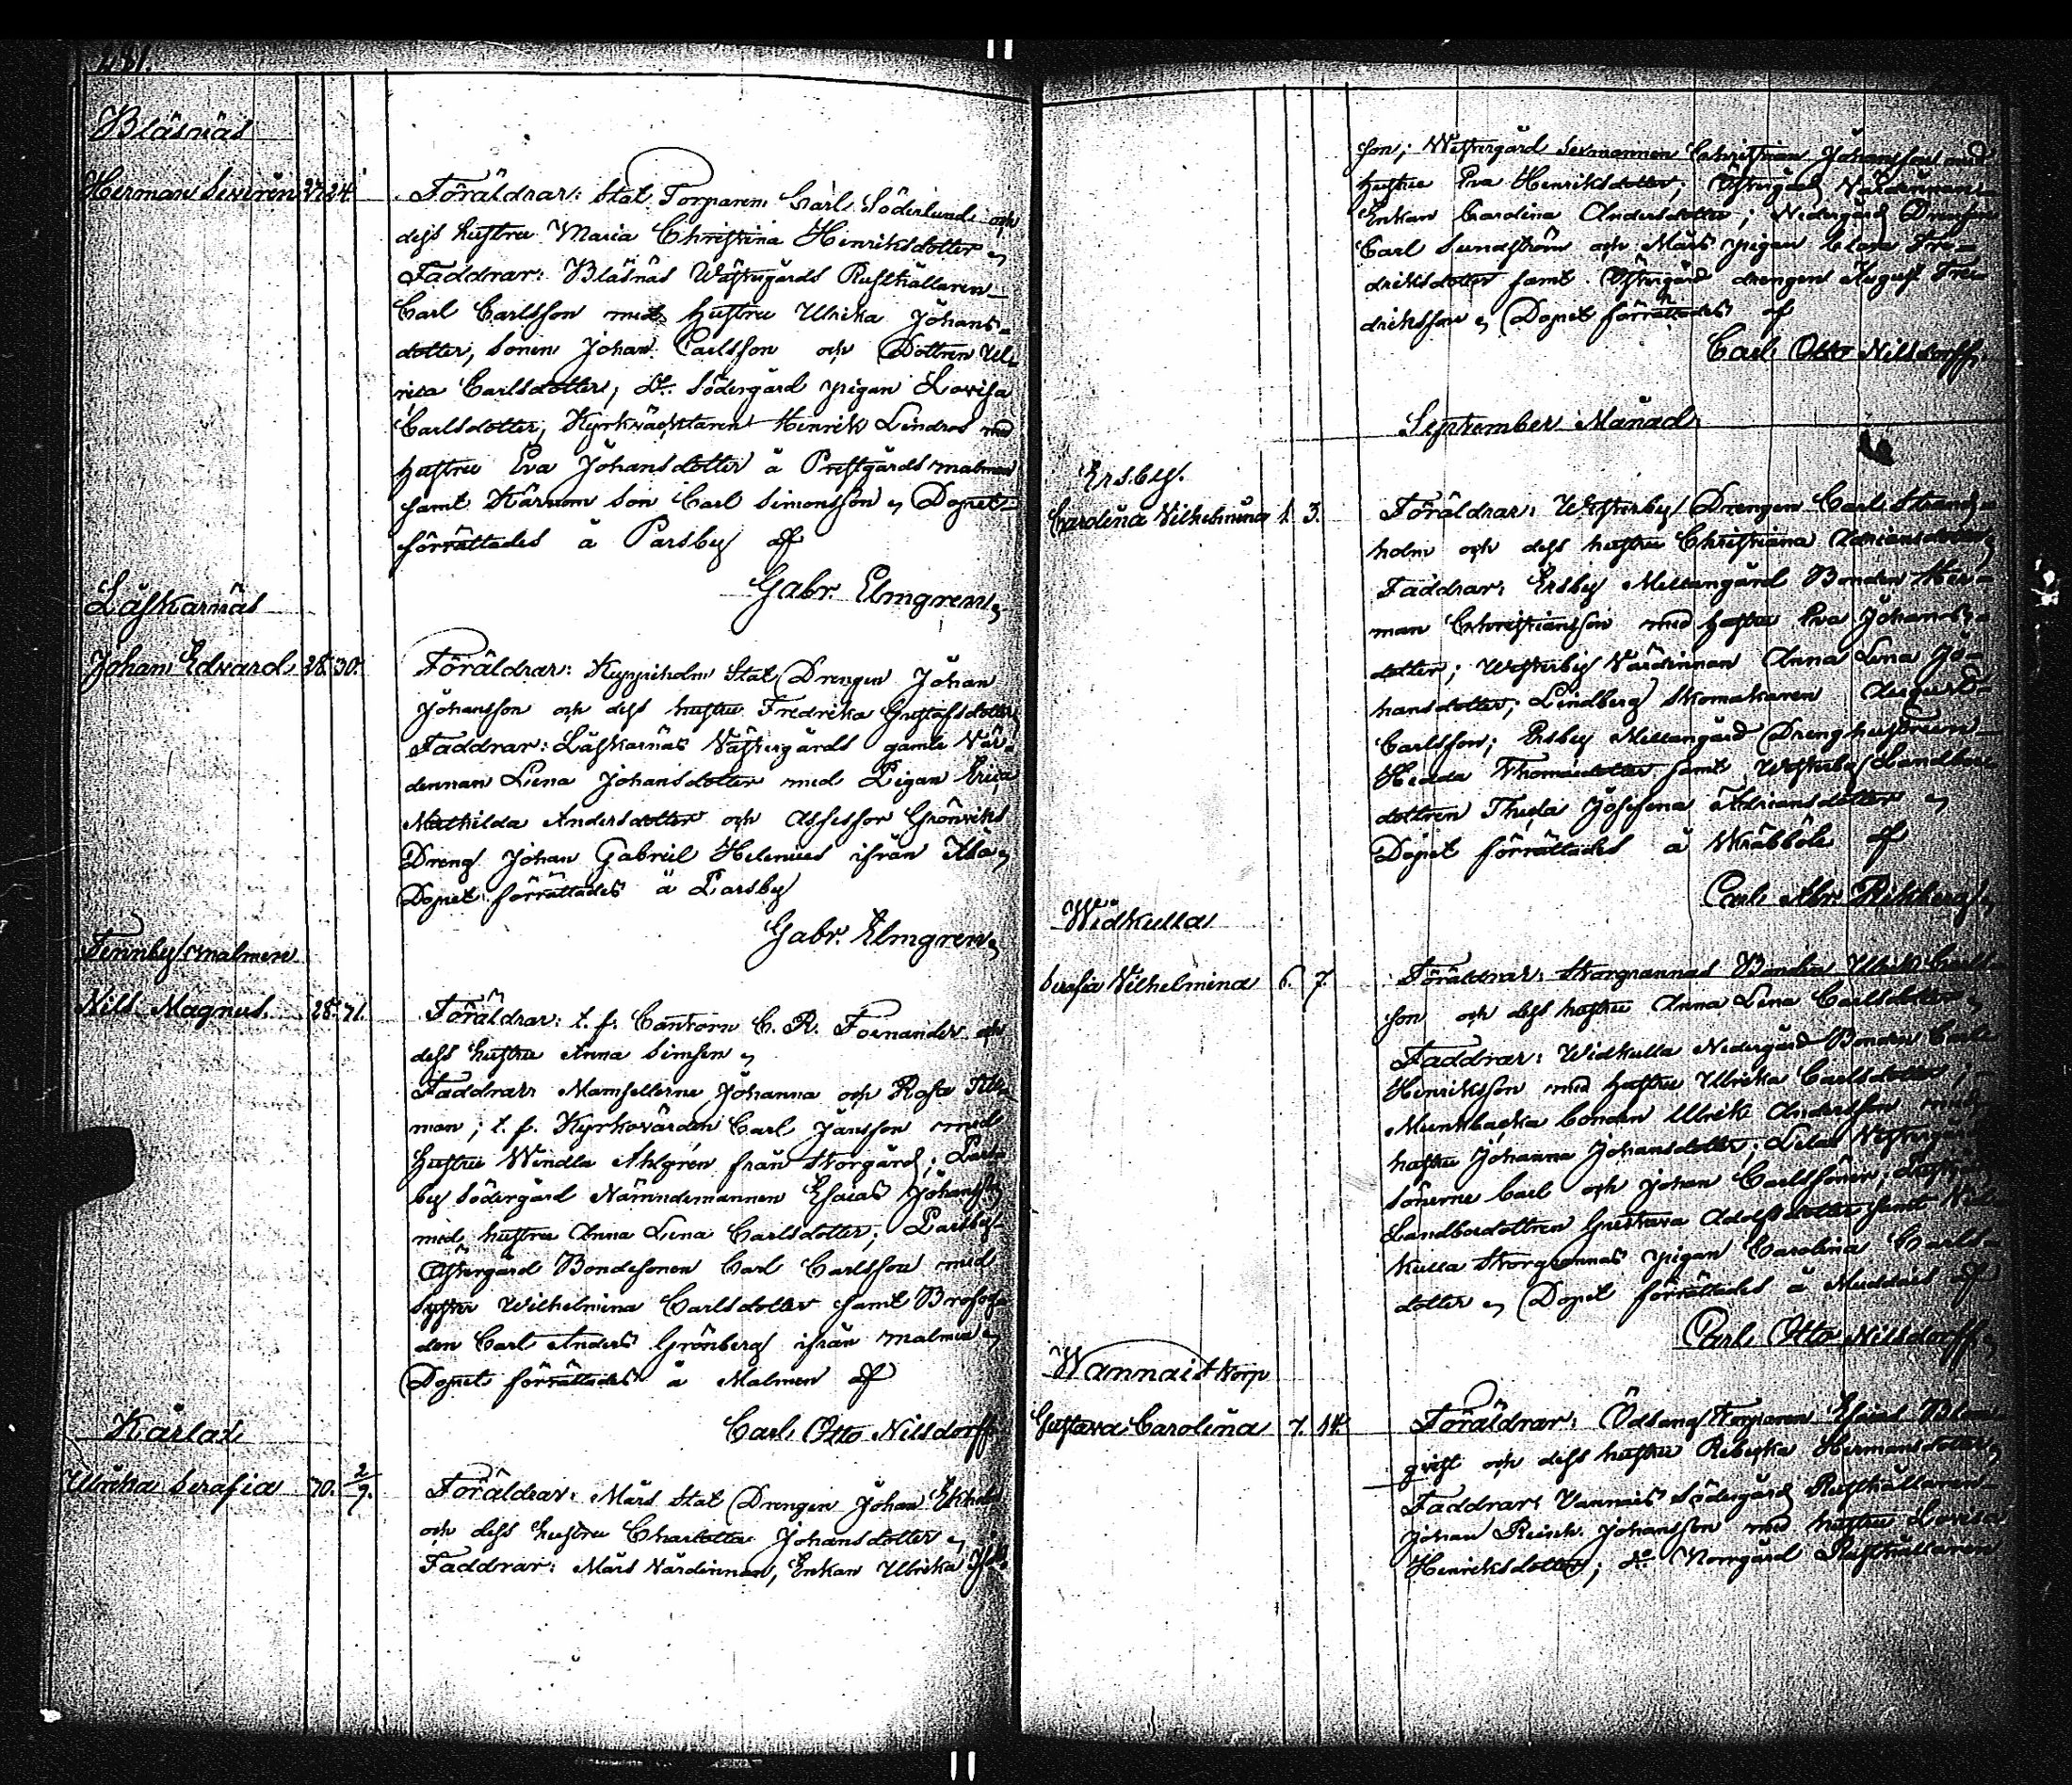 481.
Bläsnäs
Herman Severin 23. 24.
Föräldrar: Stat Torparen Carl Söderlund och
dess hustru Maria Christina Henriksdotter
Faddrar: Bläsnäs Wästergårds Rusthållaren
Carl Carlsson med hustru Ulrika Johans-
dotter, Sonen Johan Carlsson och Dottren Ul-
rica Carlsdotter; Do Södergård pigan Lovisa
Carlsdotter, Kyrkväcktaren Henrik Lindros med
hustru Eva Johansdotter å Prestgårdsmalmen
samt Kärnom Son Carl Simonsson Dopet
förrättades å Parsby af
Gabr. Elmgren
Läskarnäs
Johan Edvard 28. 30.
Föräldrar: Stat Drengen Johan
Johansson och dess hustru Fredrika Gustafsdotter
Faddrar: Läskarnäs Västergårds gamle Vär-
dennan Lena Johansdotter med Pigan Erica
Mathilda Andersdotter och Assessor Grönviks
Dreng Johan Gabriel Helenius ifrån Åbo
Dopet förrättades å Parsby
Gabr. Elmgren
Tennbymalmen
Nils Magnus. 28. 31.
Föräldrar: t. f. Cantorn C. R. Fornander och
dess hustru Anna Simsen
Faddrar: Mamsellerne Johanna och Rosa
man; t. f. Kyrkovärden Carl Jansson med
hustru Wendla Ahlgrén från Storgård; Pars-
by Södergård Nämndemannen Esaias Johansson
med hustru Anna Lena Carlsdotter; Parsby
Östergård Bondesonen Carl Carlsson med
Syster Wilhelmina Carlsdotter samt Brofog-
den Carl Anders Grönberg ifrån Malmen
Dopet förrättades å Malmen af
Carl Otto Nilsdorff
Kårlax
Ulrika Serafia 30. 2/9.
Föräldrar: Mårs Stat Drengen Johan Ekholm
och dess hustru Charlotta Johansdotter
Faddrar: Mårs Värdinnan, Enkan Ulrika
son; Westergård Sexmannen Christian Johansson med
hustru Eva Henriksdotter; Östergård
Enkan Carolina Andersdotter; Nedergård Drengen
Carl Sundström och Mårs pigan Clara Fre-
driksdotter samt Östergård drengen August Fre-
driksson Dopet förrättades af
Carl Otto Nilsdorff.
September Månad
Ersby.
Carolina Vilhelmina 1. 3.
Föräldrar: Westerby Drengen Carl Strand-
holm och dess hustru Christina Adriansdotter
Faddrar: Ersby Mellangård Bonden Her-
man Christiansson med hustru Eva Johans-
dotter; Westerby Värdinnan Anna Lena Jo-
hansdotter; Lindberg Skomakaren August
Carlsson; Ersby Mellangård Drenghustrun
Hedda Thomasdotter samt Westerby Landbon
dottren Theda Josefina Adriansdotter
Dopet förrättades å Skräbböle af
Carl Abr. Rikberg
Widkulla
Serafia Vilhelmina 6. 7.
Föräldrar: Storgrannas Bonden Ulrik Carls-
son och dess hustru Anna Lena Carlsdotter
Faddrar: Widkulla Nedergård Bonden Carl
Henriksson med hustru Ulrika Carlsdotter;
Munkbacka bonden Ulrik Andersson med
hustru Johanna Johansdotter; Westergård
sönerne Carl och Johan Carlssöner;
Landboedottren Gustava Adolfsdotter samt Wid-
kulla Storgrannas pigan Carolina Carls-
dotter Dopet förrättades å Muddais af
Carl Otto Nilsdorff
Wannais torp
Gustava Carolina 7. 14.
Föräldrar: Ödsäng Torparen Esaias Blom-
qvist och dess hustru Rebecka Hermansdotter
Faddrar: Vannais Södergård Rusthållaren
Johan Reinh. Johansson med hustru Lovisa
Henriksdotter; do Norrgård Rusthållaren